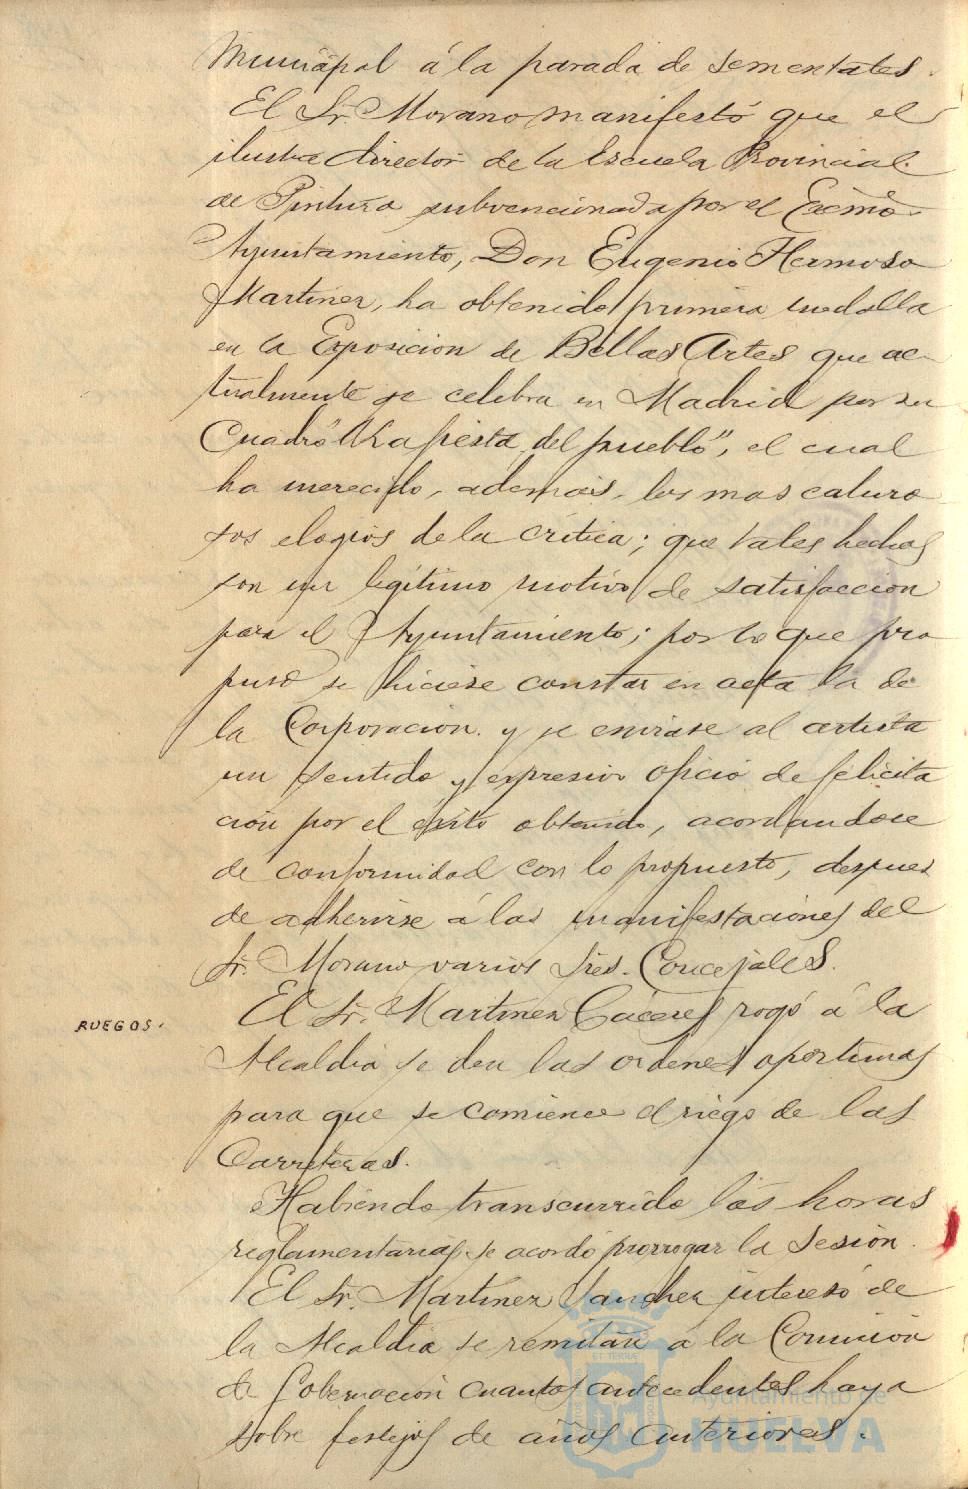 Municipal á la parada de sementales.
El Sr. Morano manifestó que el
ilustre director de la Escuela Provincial
de Pintura subvencionada por el Excmo.
Ayuntamiento, Don Eugenio Hermoso
Martinez, ha obtenido primera medalla
en la Exposicion de Bellas Artes que ac-
tualmente se celebra en Madrid por su
Cuadro "La fiesta del pueblo", el cual
ha merecido, además, los mas caluro-
sos elogios de la crítica; que tales hechos
son un legítimo motivo de satisfaccion
para el Ayuntamiento; por lo que pro
puso se hiciese constar en acta la de
la Corporacion y se enviase al artista
un sentido y expresivo oficio de felicita
ción por el éxito obtenido, acordandose
de conformidad con lo propuesto, despues
de adherirse á las manifestaciones del
Sr. Morano varios Sres. Concejales.
RUEGOS.
El Sr. Martinez Cáceres rogó á la
Alcaldia se den las ordenes oportunas
para que se comience el riego de las
Carreteras.
Habiendo transcurrido las horas
reglamentarias se acordó prorrogar la Sesión.
El Sr. Martinez Sanchez interesó de
la Alcaldia se remitan a la Comision
de Gobernación cuantos antecedentes haya
sobre festejos de años anteriores.
Ayuntamiento de
HUELVA